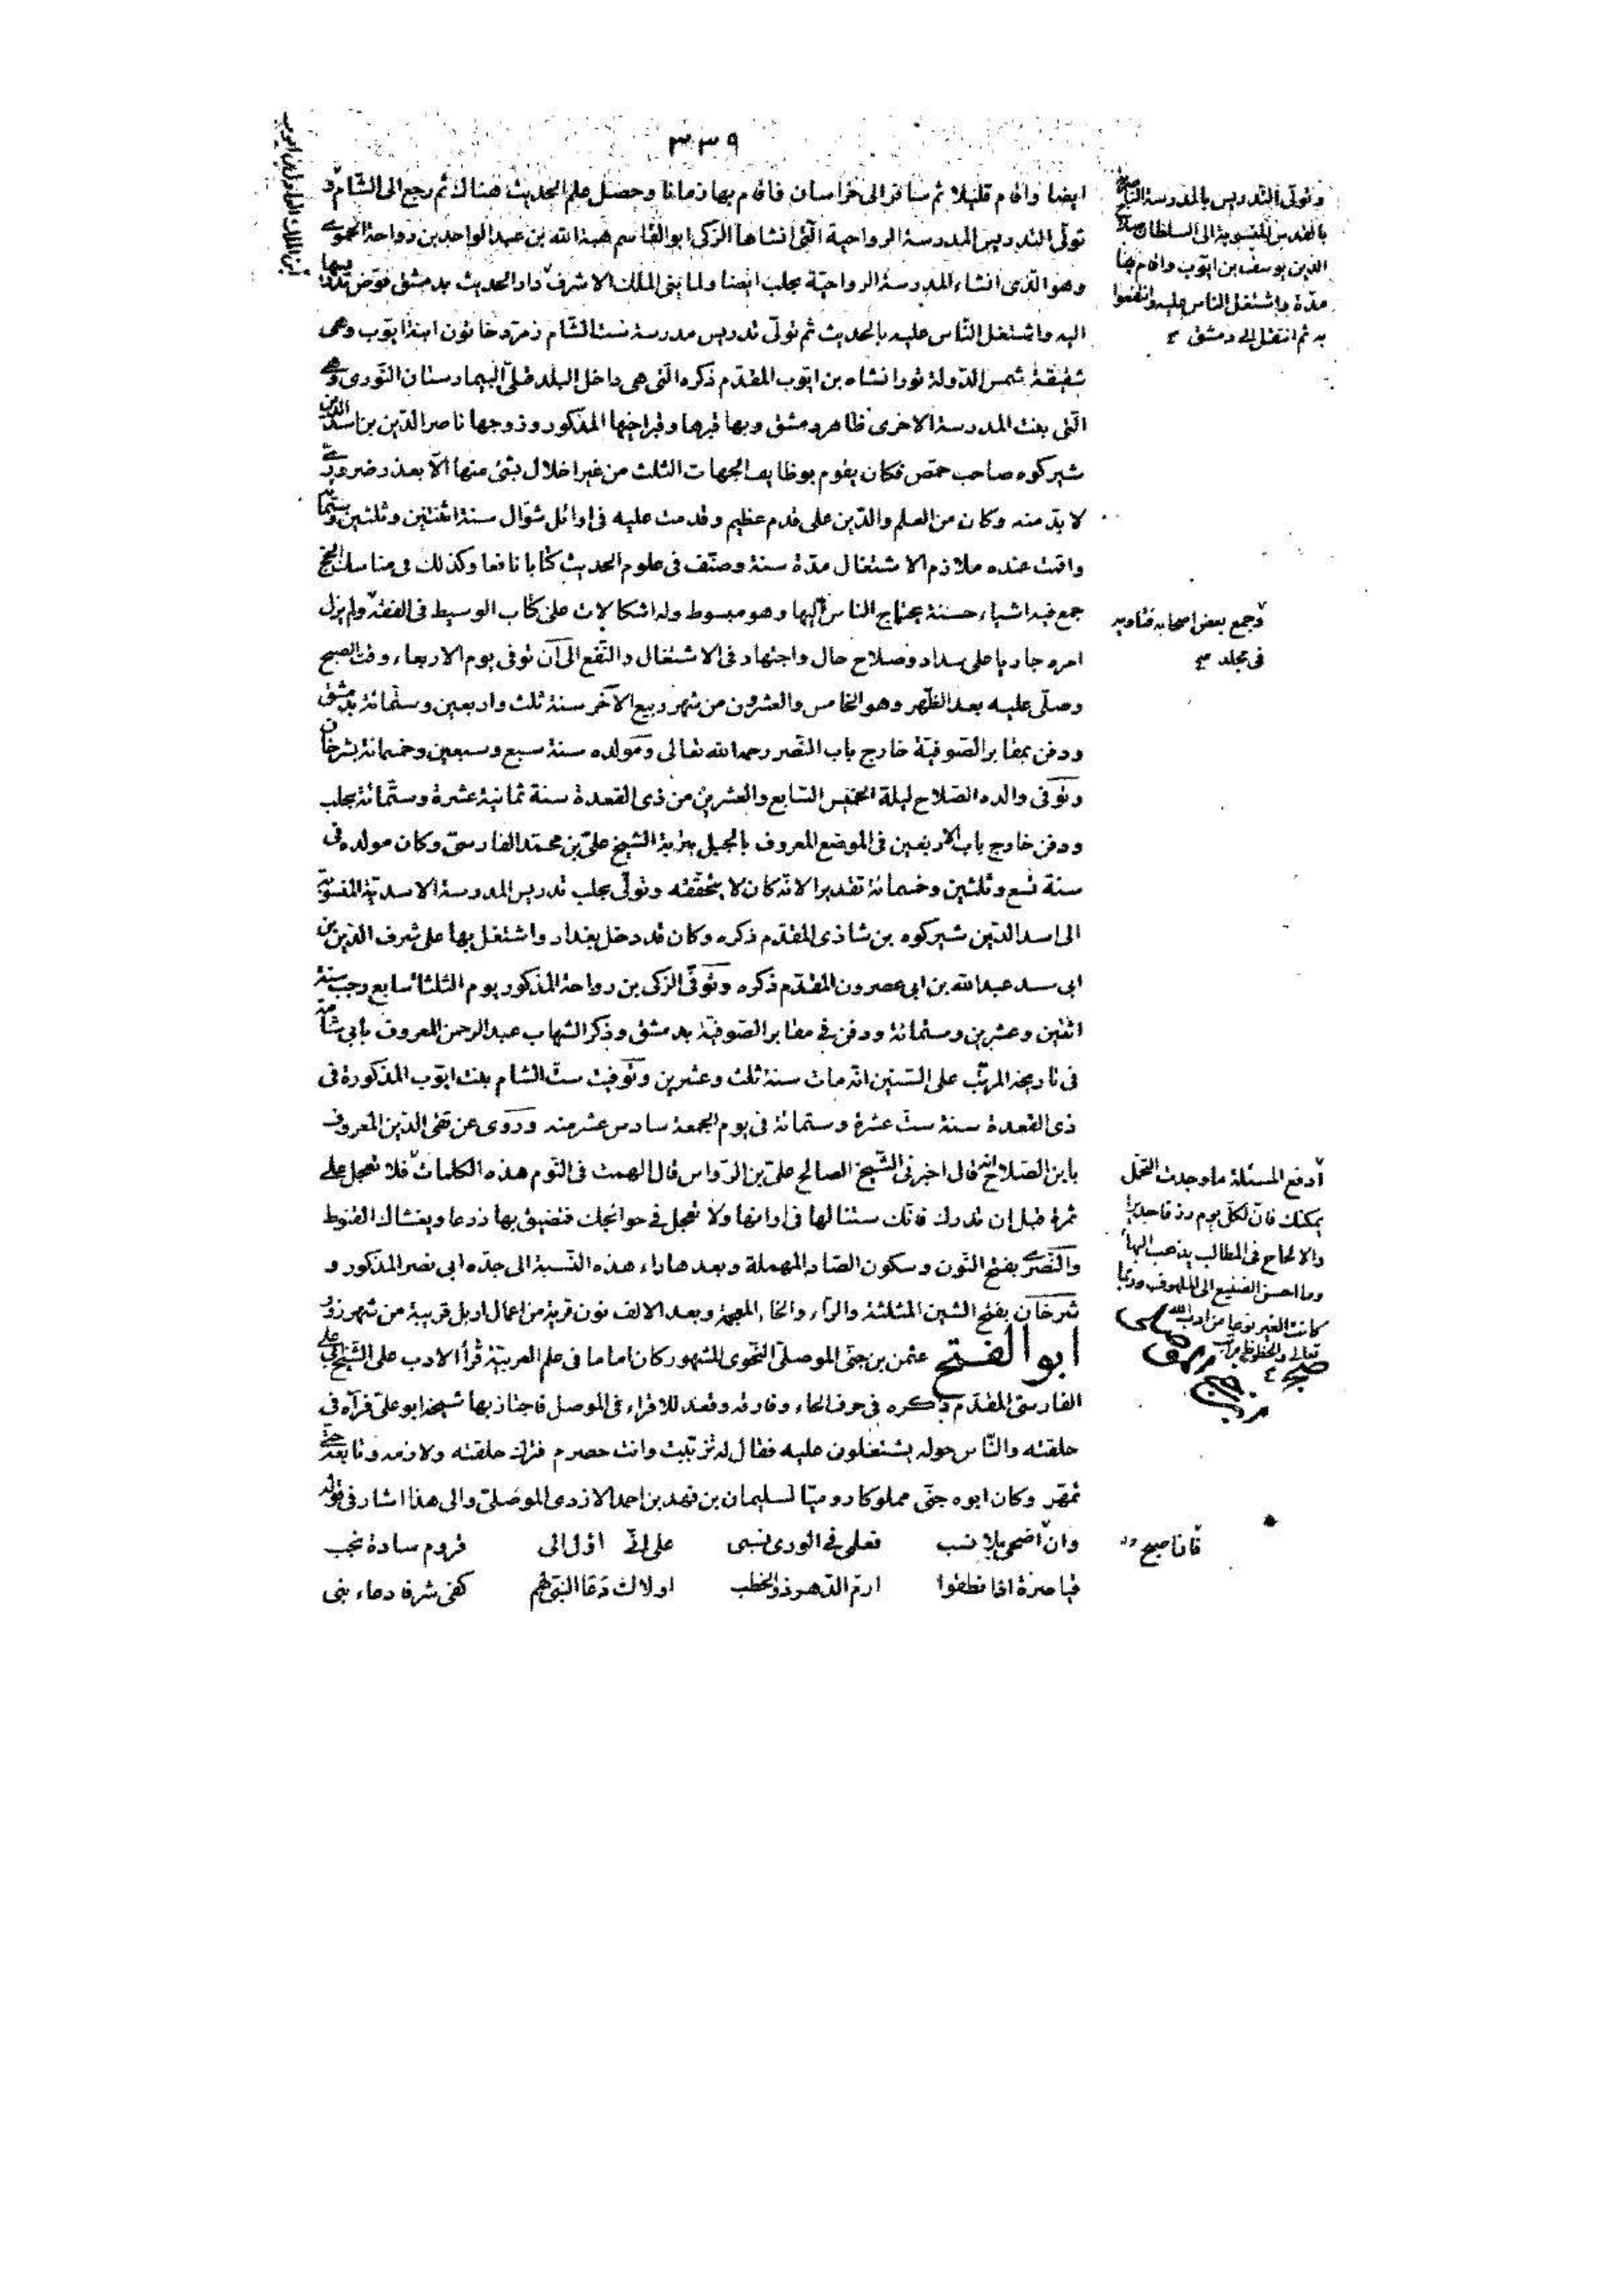 ٣٣٩
ايضا واقام قليلا ثم سافر الى خراسان فاقام بها زمانا وحصل علم الحديث هناك ثم رجع الى الشام و
تولّى التدريس بالمدرسة الرواحية الّتى انشاها الزكى ابو القاسم هبة الله بن عبد الواحد بن رواحة الحموى
وهو الّذى انشاء المدرسة الرواحيّة بحلب ايضا ولما بنى الملك الاشرف دار الحديث بدمشق فوّض تدريسها
اليه واشتغل النّاس عليه بالحديث ثم تولّى تدريس مدرسة ست الشّام زمرد خاتون ابنة ايّوب وهى
شقيقة شمس الدّولة تورانشاه بن ايّوب المقدّم ذكره الّتى هى داخل البلد قبلىّ البيمارستان النّورى وهى
الّتى بنت المدرسة الاخرى ظاهر دمشق وبها قبرها وقبر اخيها المذكور وزوجها ناصر الدّين بن اسد الدين
شيركوه صاحب حمص فكان يقوم بوظايف الجهات الثلث من غير اخلال بشئ منها الّا بعذر ضرورىّ
لا بدّ منه وكان من العلم والدّين على قدم عظيم وقدمت عليه فى اوائل شوّال سنة اثنتين وثلثين وستمائة
واقمت عنده ملازم الاشتغال مدّة سنة وصنّف فى علوم الحديث كتابا نافعا وكذلك فى مناسك الحج
جمع فيه اشياء حسنة يحتاج الناس اليها وهو مبسوط وله اشكالات على كتاب الوسيط فى الفقه ولم يزل
امره جاريا على سداد وصلاح حال واجتهاد فى الاشتغال والنّفع الى ان توفى يوم الاربعاء وقت الصبح
وصلّى عليه بعد الظّهر وهو الخامس والعشرون من شهر ربيع الآخر سنة ثلث واربعين وستّمائة بدمشق
ودفن بمقابر الصّوفيّة خارج باب النّصر رحمه الله تعالى ومولده سنة سبع وسبعين وخمسمائة بشرخان
وتوفى والده الصّلاح ليلة الخميس السّابع والعشرين من ذى القعدة سنة ثمانية عشرة وستّمائة بحلب
ودفن خارج باب الاربعين فى الموضع المعروف بالجبيل بتربة الشيخ علىّ بن محمّد الفارسىّ وكان مولده فى
سنة تسع وثلثين وخمسمائة تقديرا لانّه كان لا يتحقّقه وتولّى بحلب تدريس المدرسة الاسديّة المنسوبة
الى اسد الدّين شيركوه بن شاذى المقدّم ذكره وكان قد دخل بغداد واشتغل بها على شرف الدّين بن
ابى سعد عبد الله بن ابى عصرون المقدّم ذكره وتوفّى الزكى بن رواحة المذكور يوم الثلثا سابع رجب سنة
اثنين وعشرين وستمائة ودفن فى مقابر الصّوفيّة بدمشق وذكر الشهاب عبد الرحمن المعروف بأبى شامة
فى تاريخه المرتّب على السّنين انّه مات سنة ثلث وعشرين وتوفيت ستّ الشام بنت ايّوب المذكورة فى
ذى القعدة سنة ستّ عشرة وستمائة فى يوم الجمعة سادس عشر منه وروى عن تقى الدّين المعروف
بابن الصّلاح انّه قال اخبرنى الشّيخ الصالح علىّ بن الرّواس قال الهمت فى النّوم هذه الكلمات فلا تعجل على
ثمرة قبل ان تدرك فانّك ستنالها فى اوانها ولا تعجل فى حوائجك فتضيق بها ذرعا ويغشاك القنوط
والنّصرى بفتح النّون وسكون الصّاد المهملة وبعدها راء هذه النّسبة الى جدّه ابى نصر المذكور و
شرخان بفتح الشين المثلثة والراء والخاء المعجمة وبعد الالف نون قرية من اعمال اربل قريبة من شهرزور
ابو الفتح عثمن بن جنّى الموصلىّ النّحوى المشهور كان اماما فى علم العربيّة قرأ الادب على الشّيخ ابى على
الفارسىّ المقدّم ذكره فى حرف الحاء وفارقه وقعد للاقراء فى الموصل فاجتاز بها شيخه ابو علىّ فرآه فى
حلقته والنّاس حوله يشتغلون عليه فقال له تزبّبت وانت حصرم فترك حلقته ولازمه وتابعه حتى
تمهّر وكان ابوه جنّى مملوكا روميّا لسليمان بن فهد بن احمد الازدى الموصلىّ والى هذا اشار فى قوله
وان اضحى بلا نسب فعلمى فى الورى نسبى على انّى اؤل الى قروم سادة نجب
قياصرة اذا نطقوا ارمّ الدّهر ذو الخطب اولاك دعا النّبىّ لهم كفى شرفا دعاء نبى
وتولّى التّدريس بالمدرسة الناصرية
بالقدس المنسوبة الى السلطان صلاح
الدين يوسف بن ايّوب واقام بها
مدّة واشتغل الناس عليه وانتفعوا
به ثم انتقل الى دمشق
وجمع بعض اصحابه فتاويه
فى مجلد
ادفع المسئلة ما وجدت التحمّل
يمكنك فانّ لكلّ يوم رزقا جديدا
والالحاح فى المطالب يذهب البهاء
وما احسن الصنيع الى الملهوف وربّما
كانت الغير نوعا من ادب الله
تعالى والحظوظ مراتب
فان اصبح